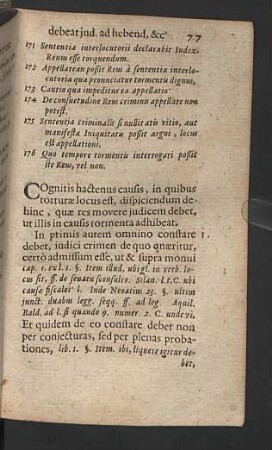 debeat jud. ad hebend, &c. 77
171 Sententia interlocutorii declarabit Index.
Reum esse torquendum.
172 Appellarean possit Reus à sententia interlo-
cutoria qua pronunciatur tormentis dignus,
173 Cautio qua impeditur ea appellatio
174 De consuetudine Reus criminis appellare non
potest.
175 Sententia criminalis si nullitatis vitio, aut
manifesta Iniquitatis possit argui, locus
est appellationi.
176 Quo tempore tormentis interrogari possit
iste Reus, vel non.
COgnitis hactenus causis, in quibus
torturæ locus est, dispiciendum de-
hinc, quæ res movere judicem debet,
ut illis in causis tormenta adhibeat.
In primis autem omnino constare 1.
debet, judici crimen de quo quæritur,
certò admissum esse, ut & supra monui
cap. 1. exl. 1. §. Item illud, ubi gl. in verb. lo-
cus sit, ff. de senatusconsulto. Silan. l. 1. C. ubi
causæ fiscales l. Inde Neratim 23. §. ultim
junct. duabus legg. seqq. ff. ad leg. Aquil.
Bald. ad l. si quando 9. numer. 2. C. unde vi.
Et quidem de eo constare debet non
per conjecturas, sed per plenas proba-
tiones, lib. 1. §. Item. ibi, liquere igitur de-
bet,